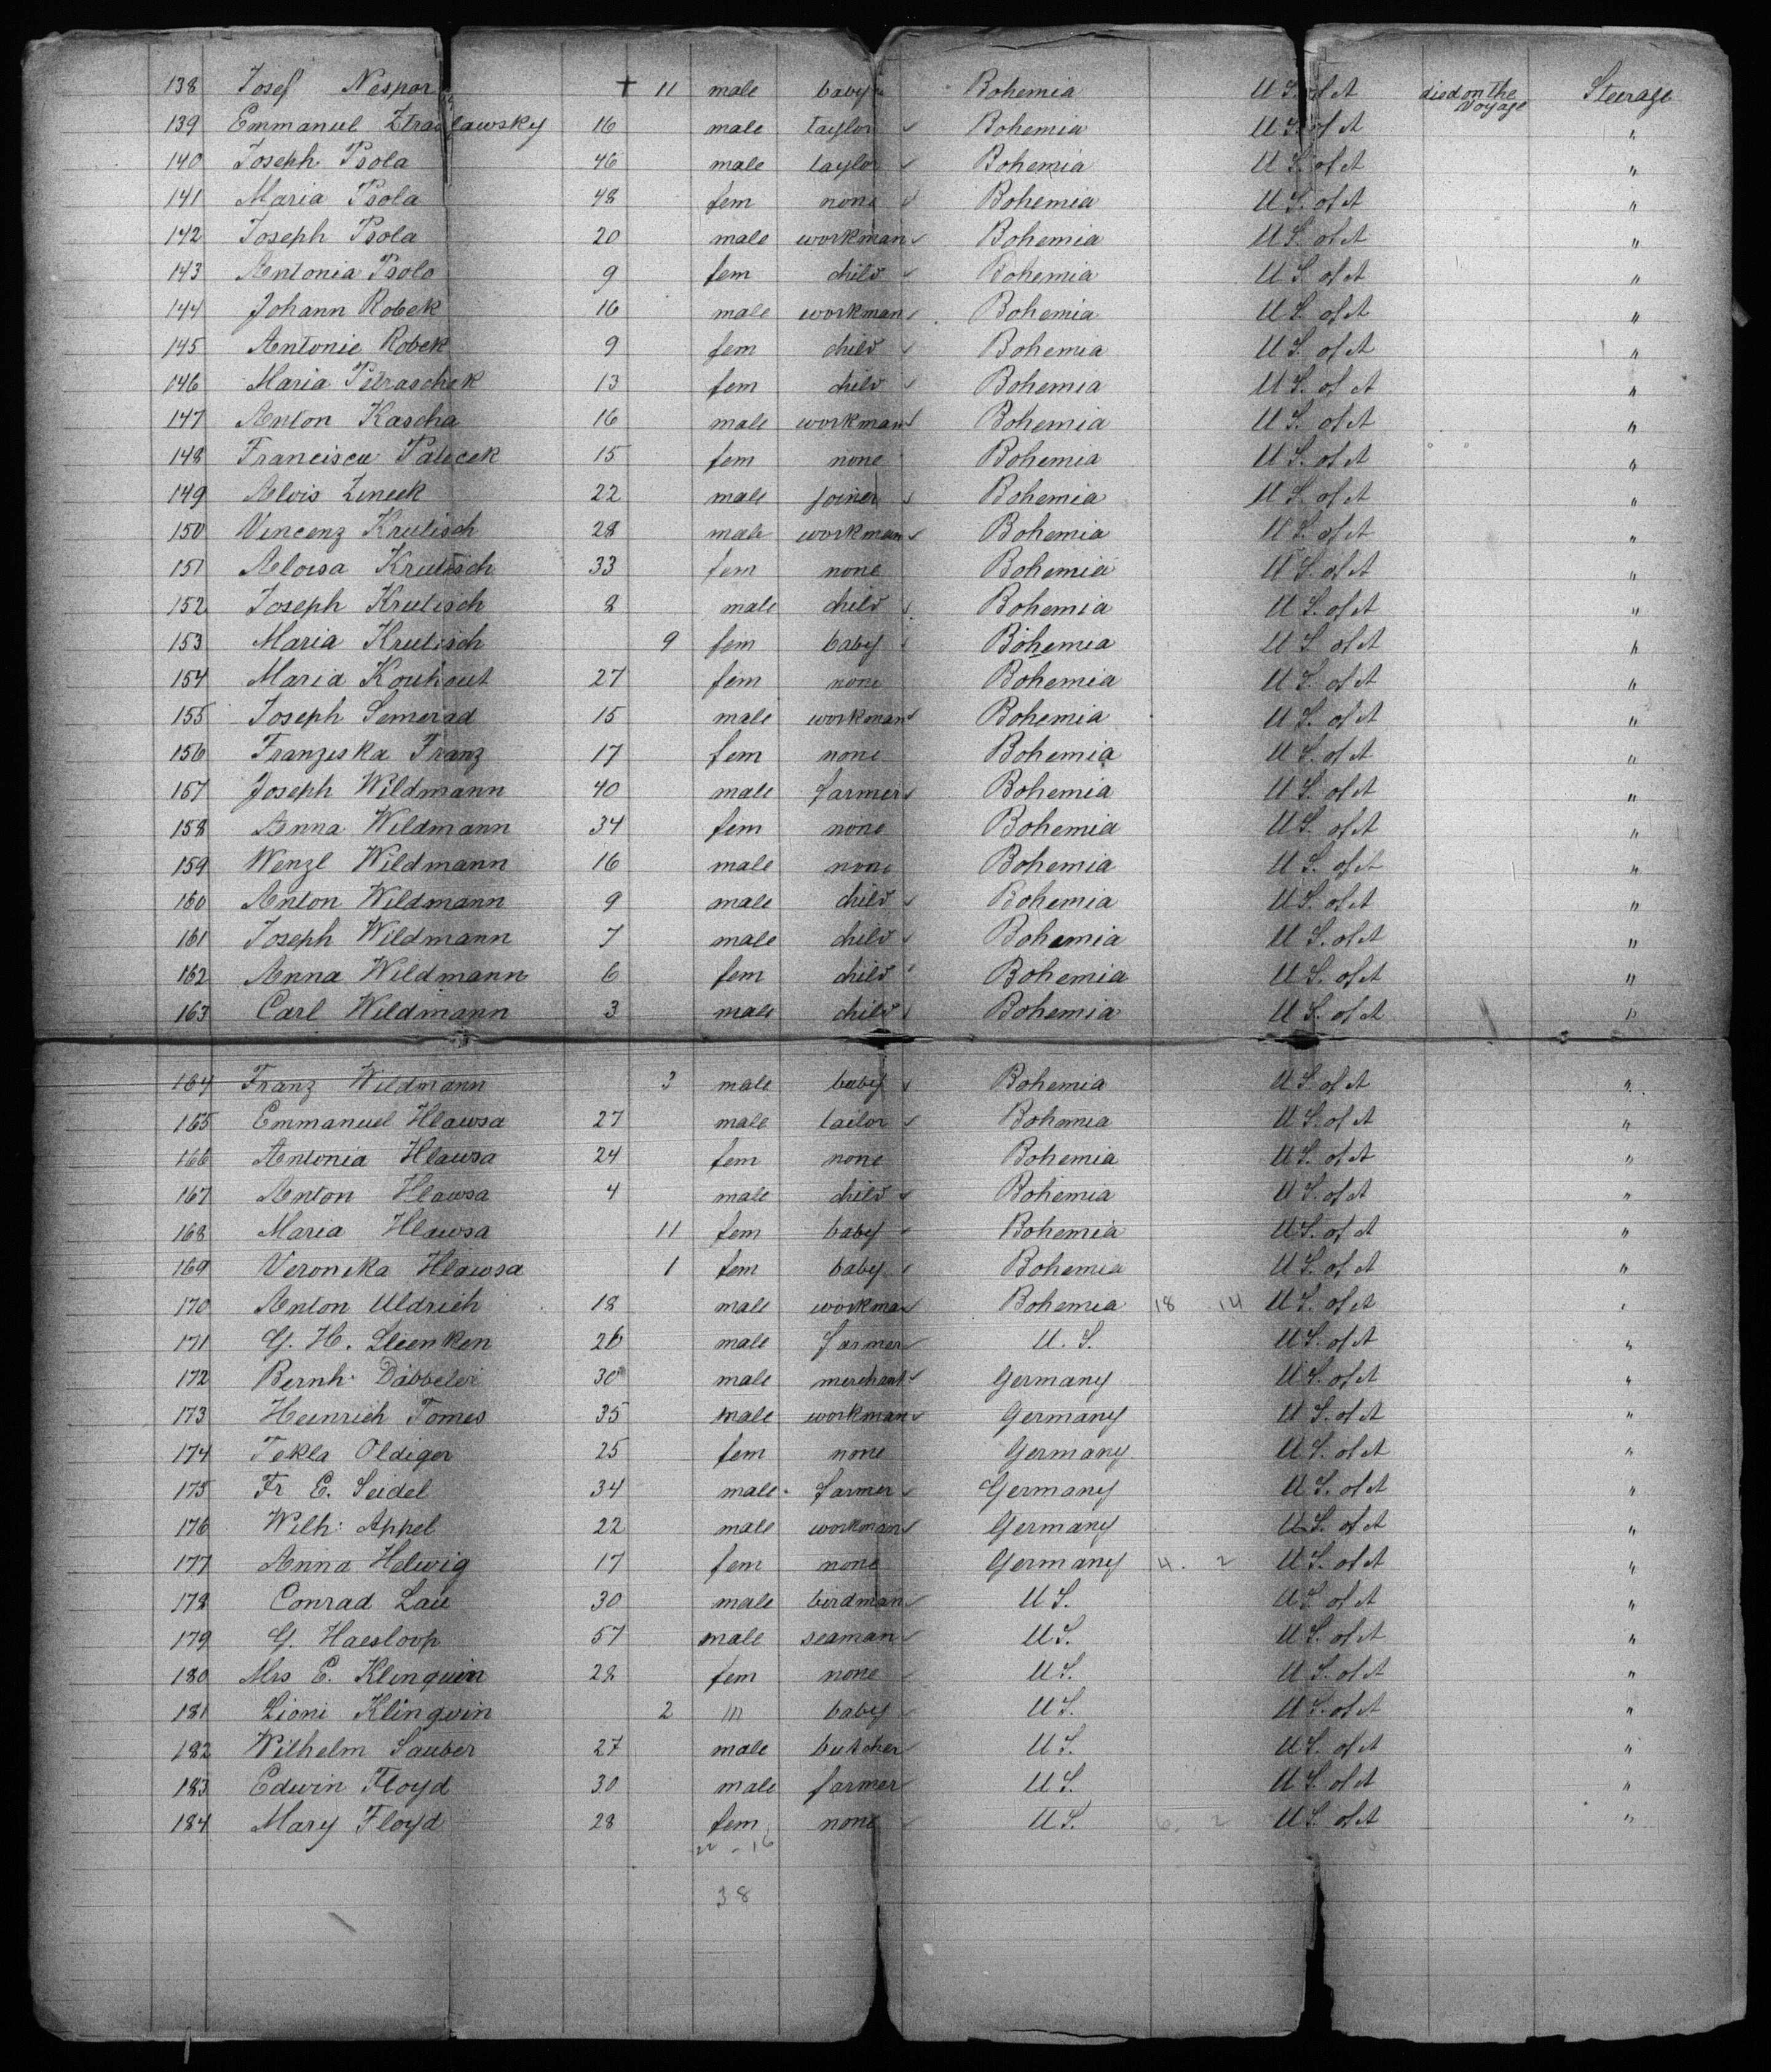 138 Josef Nespor † 11 male baby Bohemia U S. of A died on the Voyage Steerage
139 Emmanuel 16 male taylor Bohemia U S. of A "
140 Joseph Psola 46 male taylor Bohemia U S. of A "
141 Maria Psola 48 fem none Bohemia U S. of A "
142 Joseph Psola 20 male workman Bohemia U S. of A "
143 Antonia Psola 9 fem child Bohemia U S. of A "
144 Johann Robek 16 male workman Bohemia U S. of A "
145 Antonie Robek 9 fem child Bohemia U S. of A "
146 Maria Petraschek 13 fem child Bohemia U S. of A "
147 Anton Kascha 16 male workman Bohemia U S. of A "
148 Francisca Palecek 15 fem none Bohemia U S. of A "
149 Alois 22 male joiner Bohemia U S. of A "
150 Vincenz Krulisch 28 male workman Bohemia U S. of A "
151 Aloisa Krulisch 33 fem none Bohemia U S. of A "
152 Joseph Krulisch 8 male child Bohemia U S. of A "
153 Maria Krulisch 9 fem baby Bohemia U S. of A "
154 Maria Kouhout 27 fem none Bohemia U S. of A "
155 Joseph Semerad 15 male workman Bohemia U S. of A "
156 Franziska Franz 17 fem none Bohemia U S. of A "
157 Joseph Wildmann 40 male farmer Bohemia U S. of A "
158 Anna Wildmann 34 fem none Bohemia U S. of A "
159 Wenzl Wildmann 16 male none Bohemia U S. of A "
160 Anton Wildmann 9 male child Bohemia U S. of A "
161 Joseph Wildmann 7 male child Bohemia U S. of A "
162 Anna Wildmann 6 fem child Bohemia U S. of A "
163 Carl Wildmann 3 male child Bohemia U S. of A "
164 Franz Wildmann 3 male baby Bohemia U S. of A "
165 Emmanuel Hlawsa 27 male tailor Bohemia U S. of A "
166 Antonia Hlawsa 24 fem none Bohemia U S. of A "
167 Anton Hlawsa 4 male child Bohemia U S. of A "
168 Maria Hlawsa 11 fem baby Bohemia U S. of A "
169 Veronika Hlawsa 1 fem baby Bohemia U S. of A "
170 Anton Uldrich 18 male workman Bohemia 18 14 U S. of A "
171 G. H. Steenken 26 male farmer U. S. U S. of A "
172 Bernh. 30 male merchant Germany U S. of A "
173 Heinrich Tomes 35 male workman Germany U S. of A "
174 Tekla Oldiger 25 fem none Germany U S. of A "
175 Fr E. Seidel 34 male farmer Germany U S. of A "
176 Wilh. Appel 22 male workman Germany U S. of A "
177 Anna Helwig 17 fem none Germany 4. 2 U S. of A "
178 Conrad Lau 30 male birdman U S. U S. of A "
179 G. Haesloop 57 male seaman U S. U S. of A "
180 Mrs E. Klinquin 28 fem none U S. U S. of A "
181 Lioni Klingvin 2 m baby U S. U S. of A "
182 Wilhelm Sauber 27 male butcher U S. U S. of A "
183 Edwin Floyd 30 male farmer U S. U S. of A "
184 Mary Floyd 28 fem none U S. 6. 2 U S. of A "
22 - 16
38